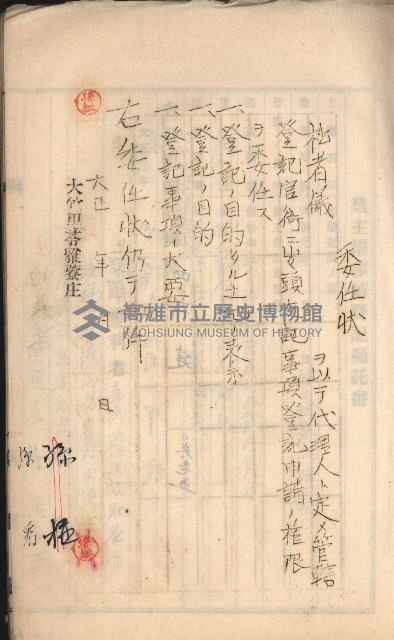 委任状
拙者儀　ヲ以テ代理人ト定メ管轄
登記官衙ニ出頭左記事項登記申請ノ権限
ヲ委任ス
一、登記ノ目的タル土地ノ表示
一、登記ノ目的
一、登記事項ノ大要
右委任状仍テ如件
大正　年　月　日
大竹里苓雅寮庄
孫
高雄市立歷史博物館
KAOHSIUNG MUSEUM OF HISTORY